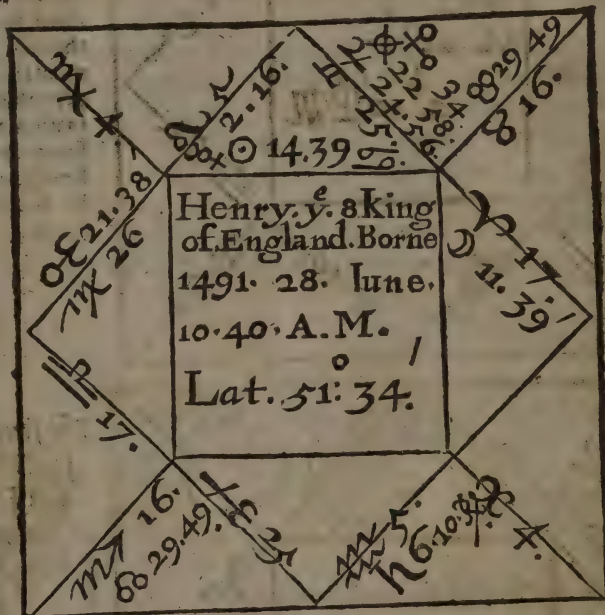 Henry. yᵉ. 8 king
of. England. Borne
1491. 28. Iune.
10. 40. A. M.
Lat. 51°: 34.'
♍ 4.
♌ 2. 16.
☉ 14. 39 ♋
♊ 25.
♃ 24. 56.
☋ 29 49
♉ 16.
♈ 17.
☽ 11. 39
21. 38
♍ 26
♎ 17.
♏ 16.
29. 49.
♐ 25
♒ 5.
♄ 6. 10.
♓ 4.